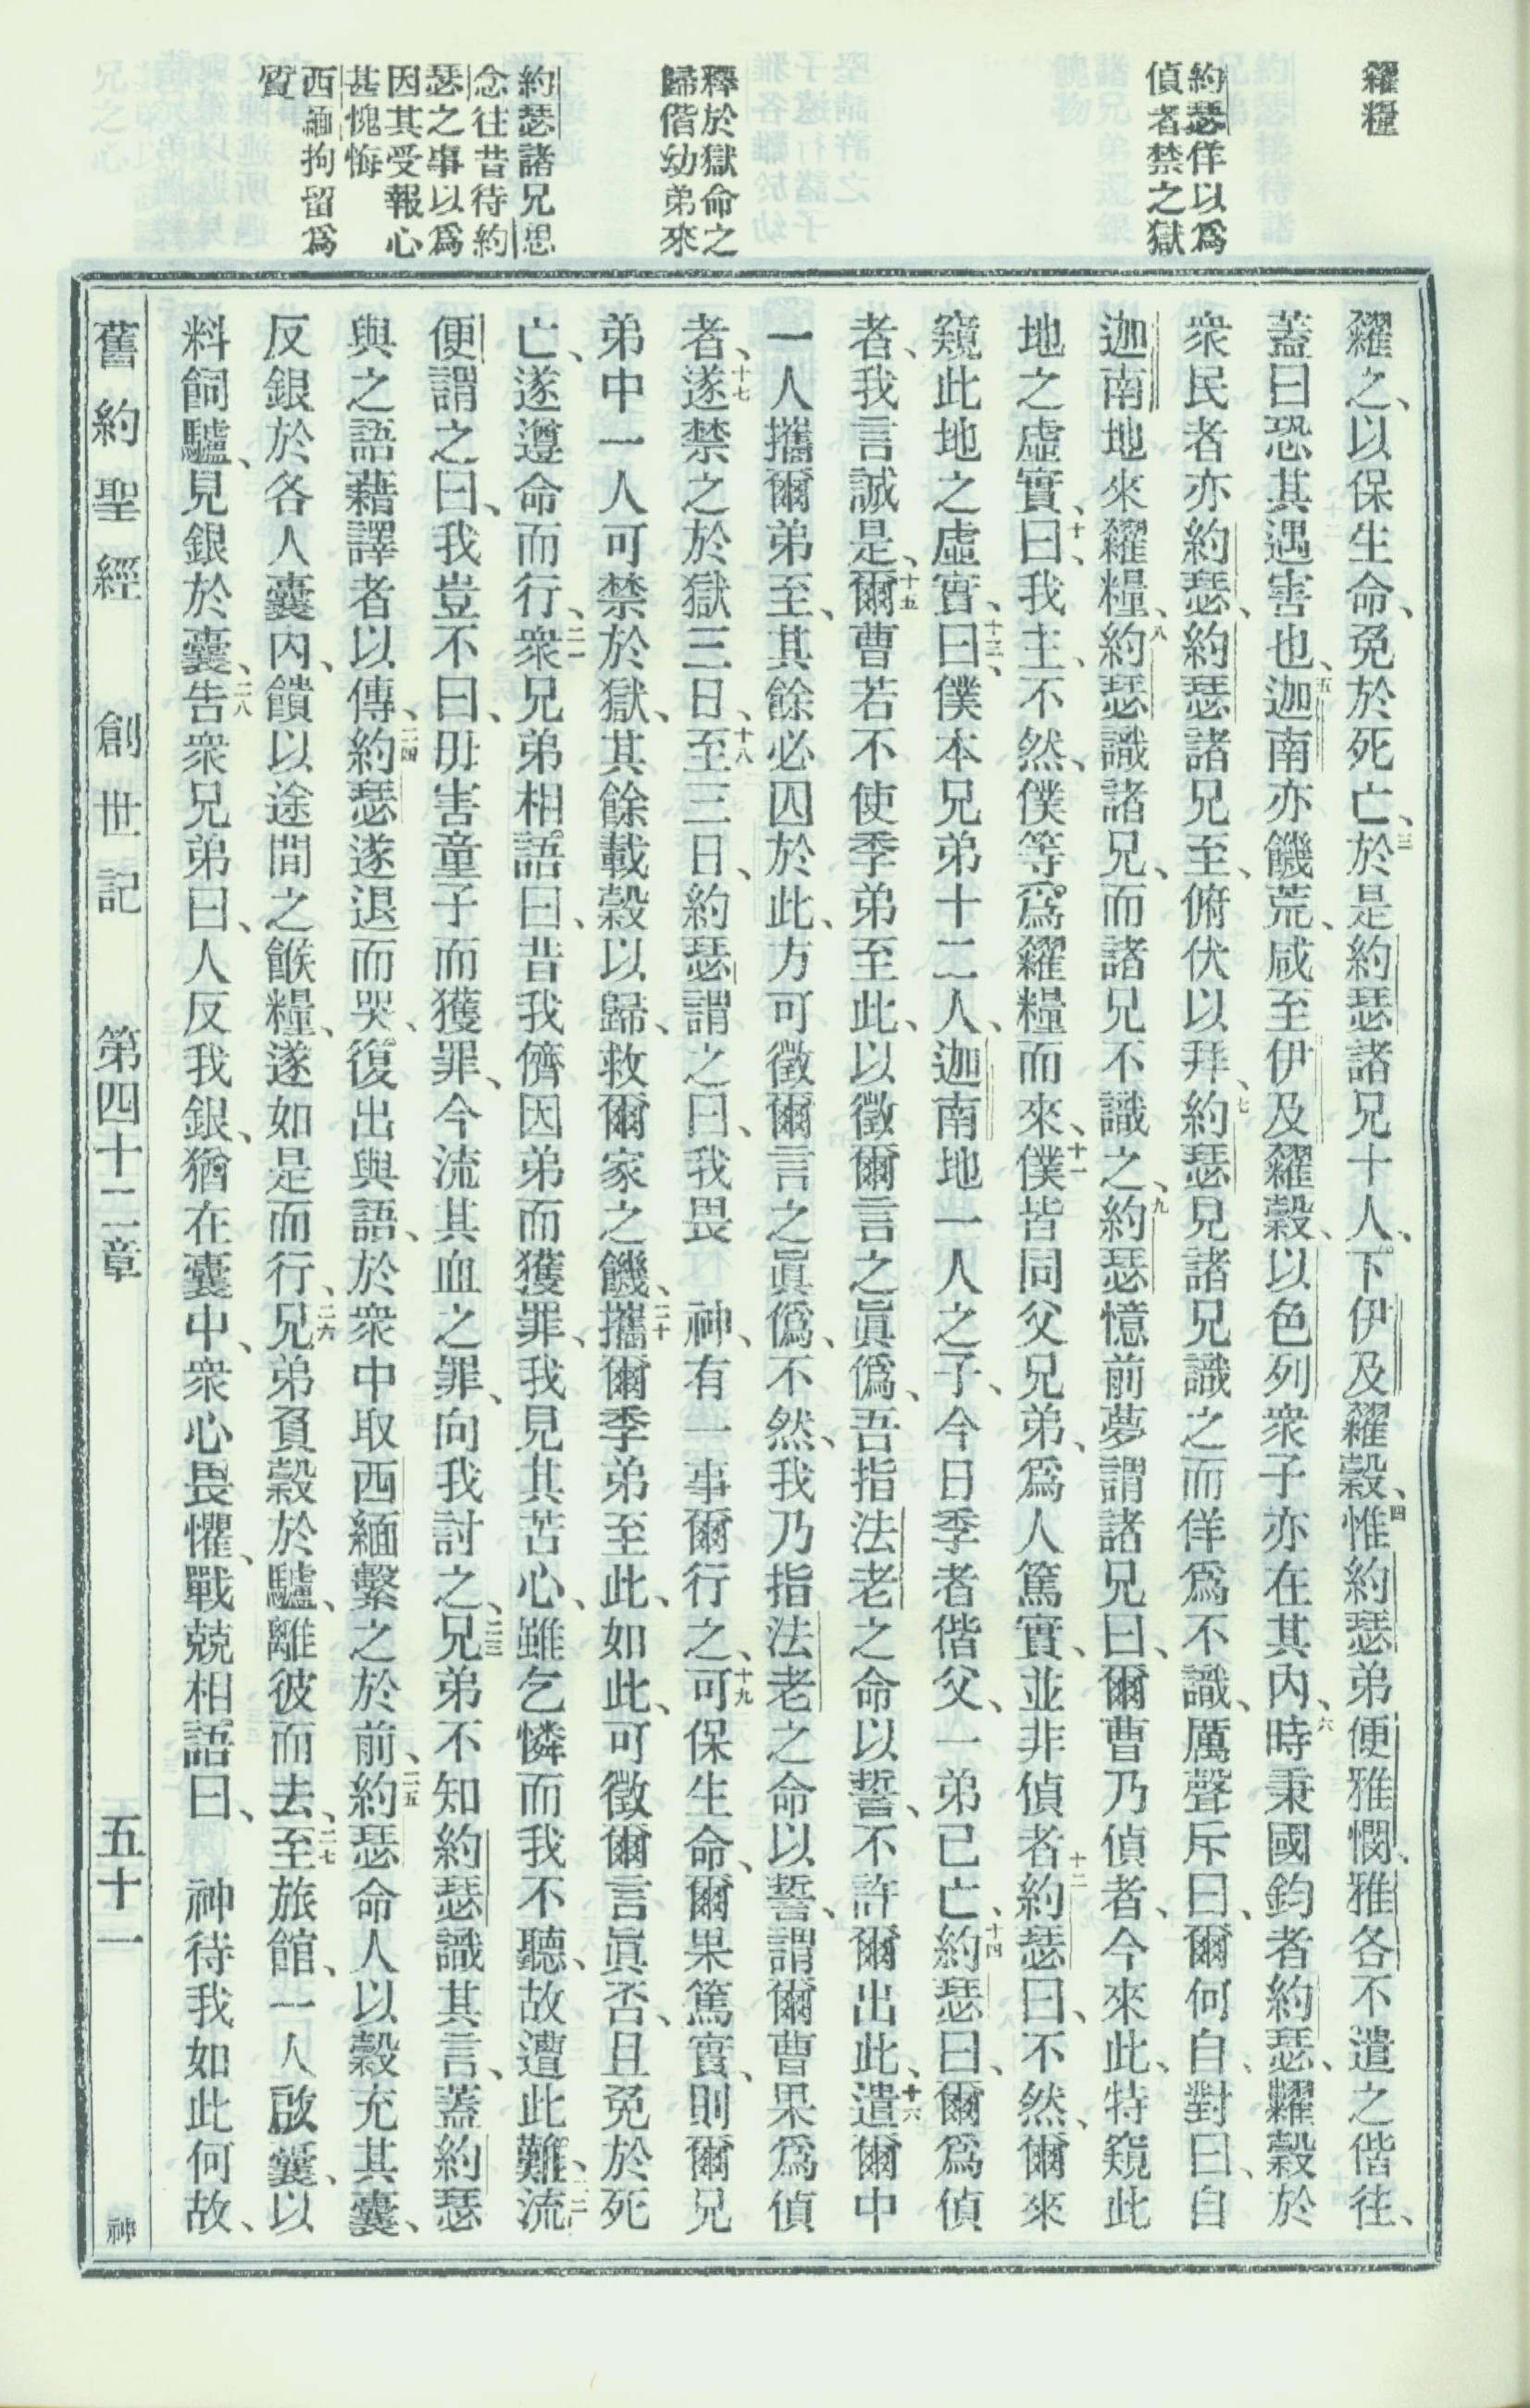 糴糧
約瑟佯以爲
偵者禁之獄
釋於獄命之
歸偕幼弟來
約瑟諸兄思
念往昔待約
瑟之事以爲
因其受報心
甚愧悔
西緬拘留爲
質
糴之、以保生命、免於死亡、三於是約瑟諸兄十人、下伊及糴穀、四惟約瑟弟便雅憫、雅各不遣之偕往、
蓋曰恐其遇害也、五迦南亦饑荒、咸至伊及糴穀、以色列衆子亦在其內、六時秉國鈞者約瑟、糶穀於
衆民者亦約瑟、約瑟諸兄至、俯伏以拜、七約瑟見諸兄識之而佯爲不識、厲聲斥曰、爾何自、對曰、自
迦南地來糴糧、八約瑟識諸兄、而諸兄不識之、九約瑟憶前夢謂諸兄曰、爾曹乃偵者、今來此、特窺此
地之虛實、十曰、我主、不然、僕等爲糴糧而來、十一僕皆同父兄弟、爲人篤實、並非偵者、十二約瑟曰、不然、爾來
窺此地之虛實、十三曰、僕本兄弟十二人、迦南地一人之子、今日季者偕父、一弟已亡、十四約瑟曰、爾爲偵
者、我言誠是、十五爾曹若不使季弟至此、以徵爾言之眞僞、吾指法老之命以誓、不許爾出此、十六遣爾中
一人攜爾弟至、其餘必囚於此、方可徵爾言之眞僞、不然、我乃指法老之命以誓、謂爾曹果爲偵
者、十七遂禁之於獄三日、十八至三日、約瑟謂之曰、我畏　神、有一事爾行之、可保生命、十九爾果篤實、則爾兄
弟中一人可禁於獄、其餘載穀以歸、救爾家之饑、二十攜爾季弟至此、如此、可徵爾言眞否、且免於死
亡、遂遵命而行、二一衆兄弟相語曰、昔我儕因弟而獲罪、我見其苦心、雖乞憐而我不聽、故遭此難、二二流
便謂之曰、我豈不曰、毋害童子而獲罪、今流其血之罪、向我討之、二三兄弟不知約瑟識其言、蓋約瑟
與之語藉譯者以傳、二四約瑟遂退而哭、復出與語、於衆中取西緬繫之於前、二五約瑟命人以穀充其囊、
反銀於各人囊內、饋以途間之餱糧、遂如是而行、二六兄弟負穀於驢、離彼而去、二七至旅館、一人啟囊、以
料飼驢、見銀於囊、二八告衆兄弟曰、人反我銀、猶在囊中、衆心畏懼、戰兢相語曰、　神待我如此何故、
舊約聖經　創世記　第四十二章　五十一　神